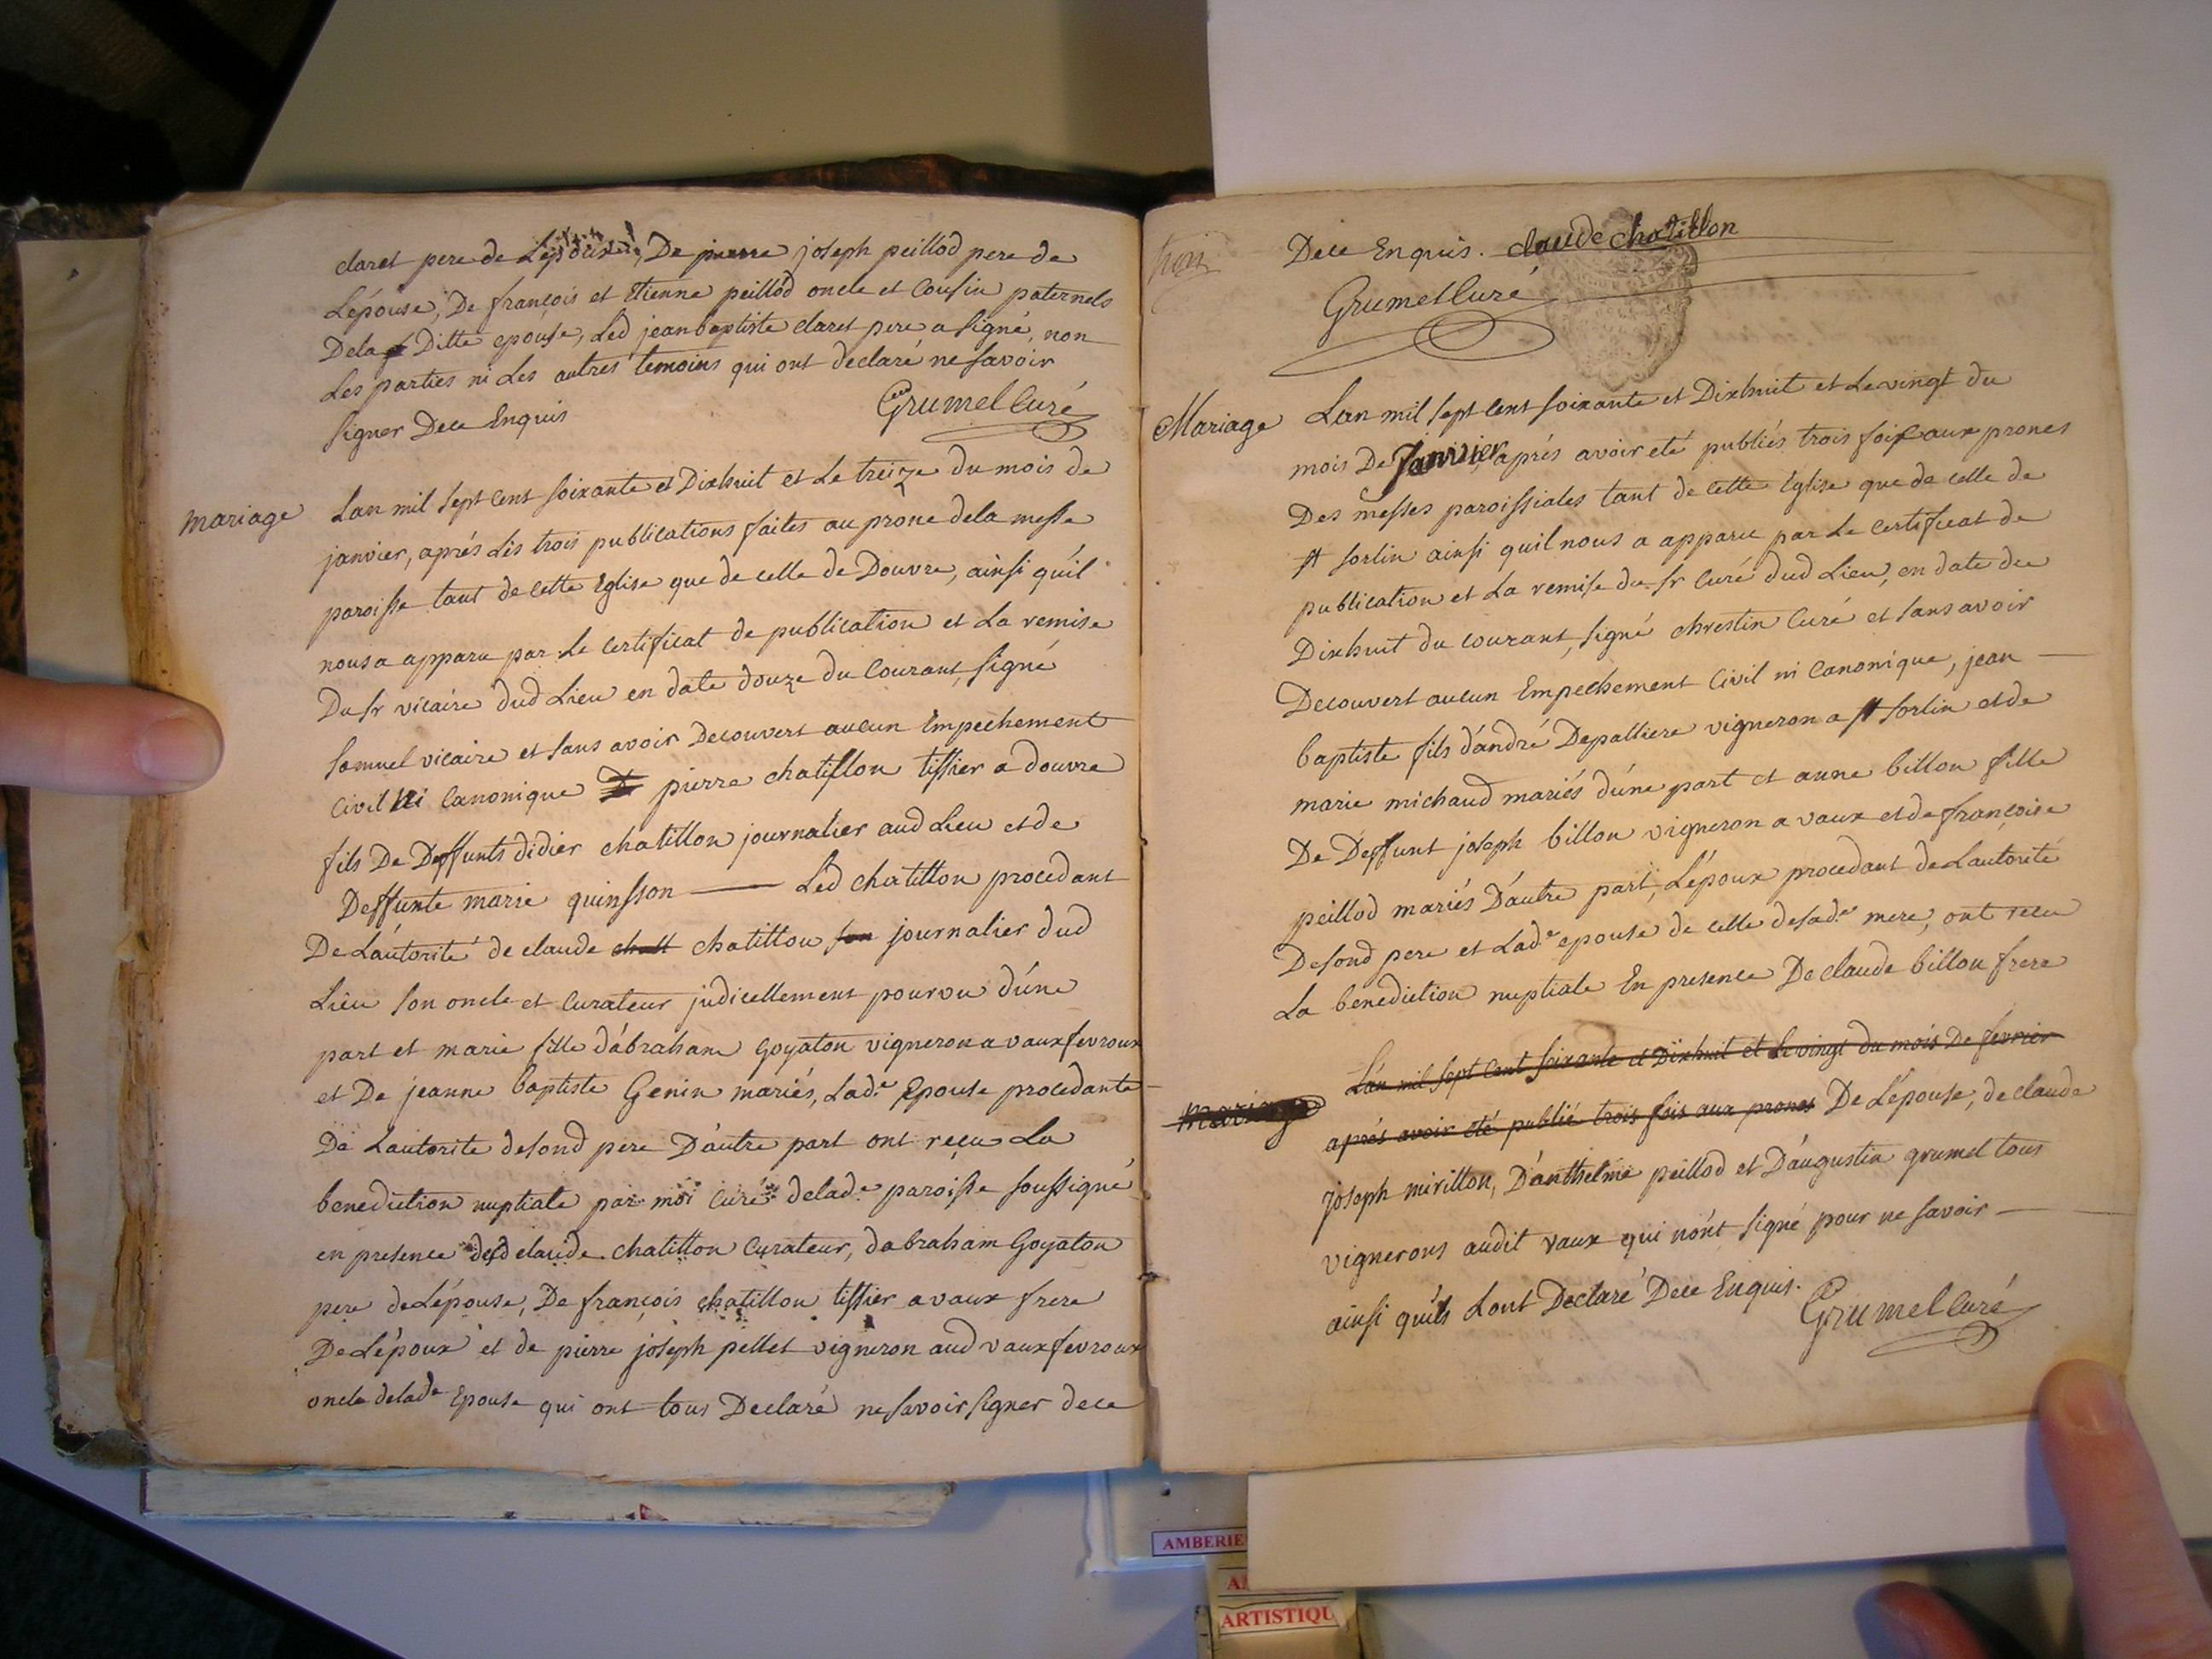 claret pere de Lepoux, De pierre joseph peillod pere de
Lépouse, De françois et Etienne peillod oncle et Cousin paternels
Dela Ditte epouse, Led jean baptiste claret pere a signé, non
Les parties ni Les autres temoins qui ont declaré ne savoir
signer Dece Enquis
Grumel Curé
mariage
Lan mil sept cent soixante et Dixhuit et Le treize du mois de
janvier, aprés Les trois publications faites au prone dela messe
paroisse tant de cette Eglise que de celle de Douvre, ainsi qu'il
nous a apparu par Le Certificat de publication et La remise
Du sr vicaire dud Lieu en date douze du Courant, signé
Somuel vicaire et sans avoir Decouvert aucun Empechement
Civil ni Canonique pierre chatillon tissier a douvre
fils De Deffunts didier chatillon journalier aud Lieu et de
Deffunte marie quinsson Led chatillon procedant
De L'autorité de claude chatt chatillon son journalier dud
Lieu son oncle et Curateur judicellement pourvu d'une
part et marie fille d'abraham Goyaton vigneron a vauxfevroux
et De jeanne baptiste Genin mariés, Lade Epouse procedante
De Lautorite desond pere D'autre part ont reçu La
benediction nuptiale par moi curé delade paroisse soussigné
en presence dud claude chatillon Curateur, dabraham Goyaton
pere de Lépouse, De françois chatillon tissier a vaux frere
De Lépoux et de pierre joseph pellet vigneron aud vauxfevroux
oncle delade Epouse qui ont tous Declaré ne savoir signer dece
Dece Enquis. claude chatillon
Grumel Curé
Mariage
Lan mil sept cent soixante et Dixhuit et Le vingt du
mois De Janvier, aprés avoir eté publiés trois fois aux prones
Des messes paroissiales tant de cette Eglise que de celle de
st sorlin ainsi quil nous a apparu par Le Certificat de
publication et La remise du sr Curé dud Lieu, en date du
Dixhuit du courant, signé chrestin Curé et sans avoir
Decouvert aucun Empechement Civil ni Canonique, jean
baptiste fils d'andré Depalliere vigneron a st sorlin et de
marie michaud mariés d'une part et anne billon fille
De Deffunt joseph billon vigneron a vaux et de françoise
peillod mariés D'autre part, L'époux procedant de Lautorité
Desond pere et Lade epouse de celle desade mere, ont reçu
La benediction nuptiale En presence De claude billon frere
Lan mil sept cent soixante et Dixhuit et Le vingt du mois De fevrier
mariage
aprés avoir eté publié trois fois aux prones De Lépouse, de claude
joseph mirillon, D'anthelme peillod et D'augustin grumel tous
vignerons audit vaux qui n'ont signé pour ne savoir
ainsi qu'ils Lont Declaré Dece Enquis.
Grumel Curé
AMBERIE
ARTISTIQU